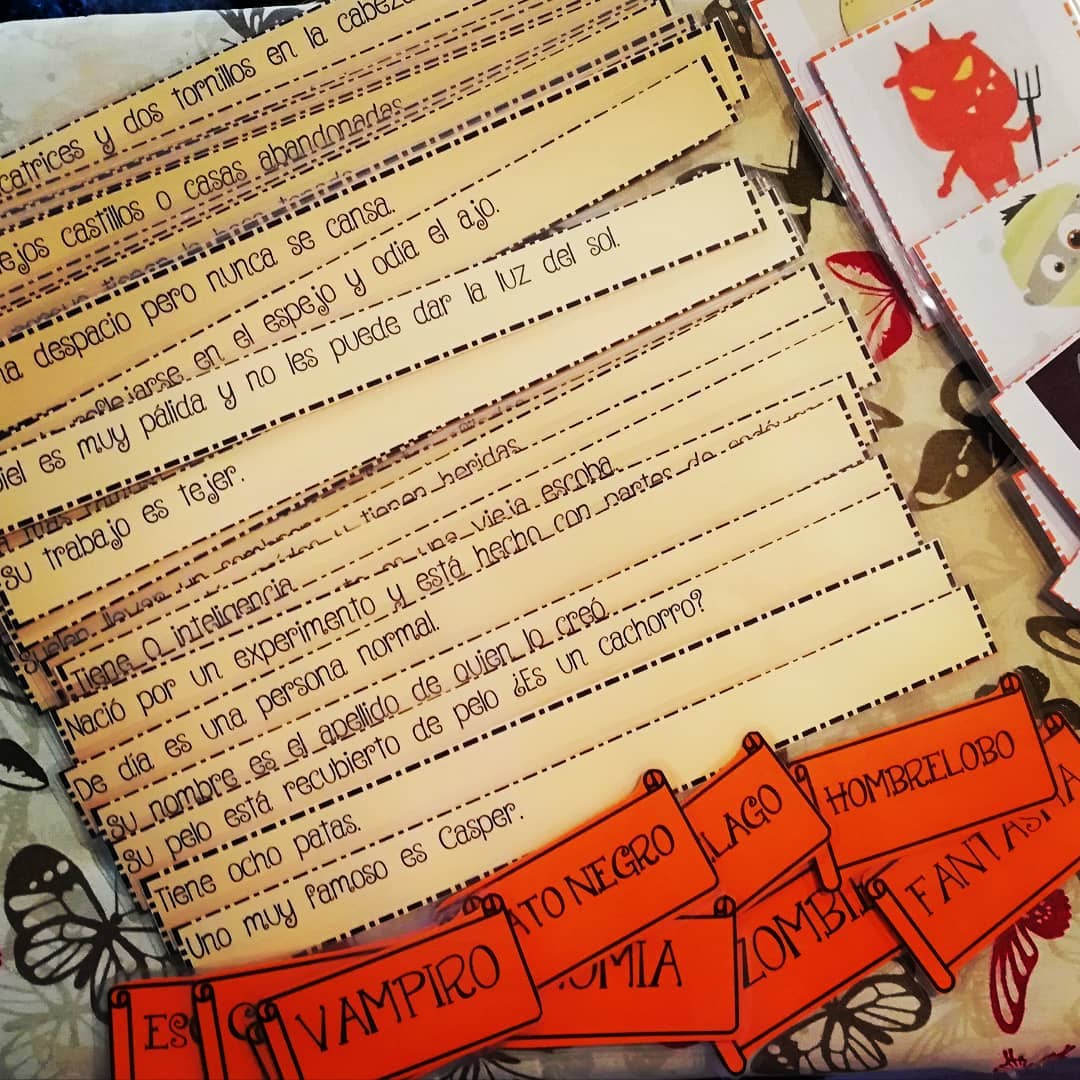 catrices y dos tornillos en la cabeza
ejos castillos o casas abandonadas.
na despacio pero nunca se cansa.
reflejarse en el espejo y odia el ajo.
piel es muy pálida y no les puede dar la luz del sol.
Su trabajo es tejer.
y tienen heridas.
en una vieja escoba.
Tiene 0 inteligencia
Nació por un experimento y está hecho con partes de
De día es una persona normal.
Su nombre es el apellido de quien lo creó.
Su pelo está recubierto de pelo ¿Es un cachorro?
Tiene ocho patas.
Uno muy famoso es Casper.
HOMBRELOBO
LAGO
ATO NEGRO
FANTASMA
ZOMBI
OMIA
VAMPIRO
ES